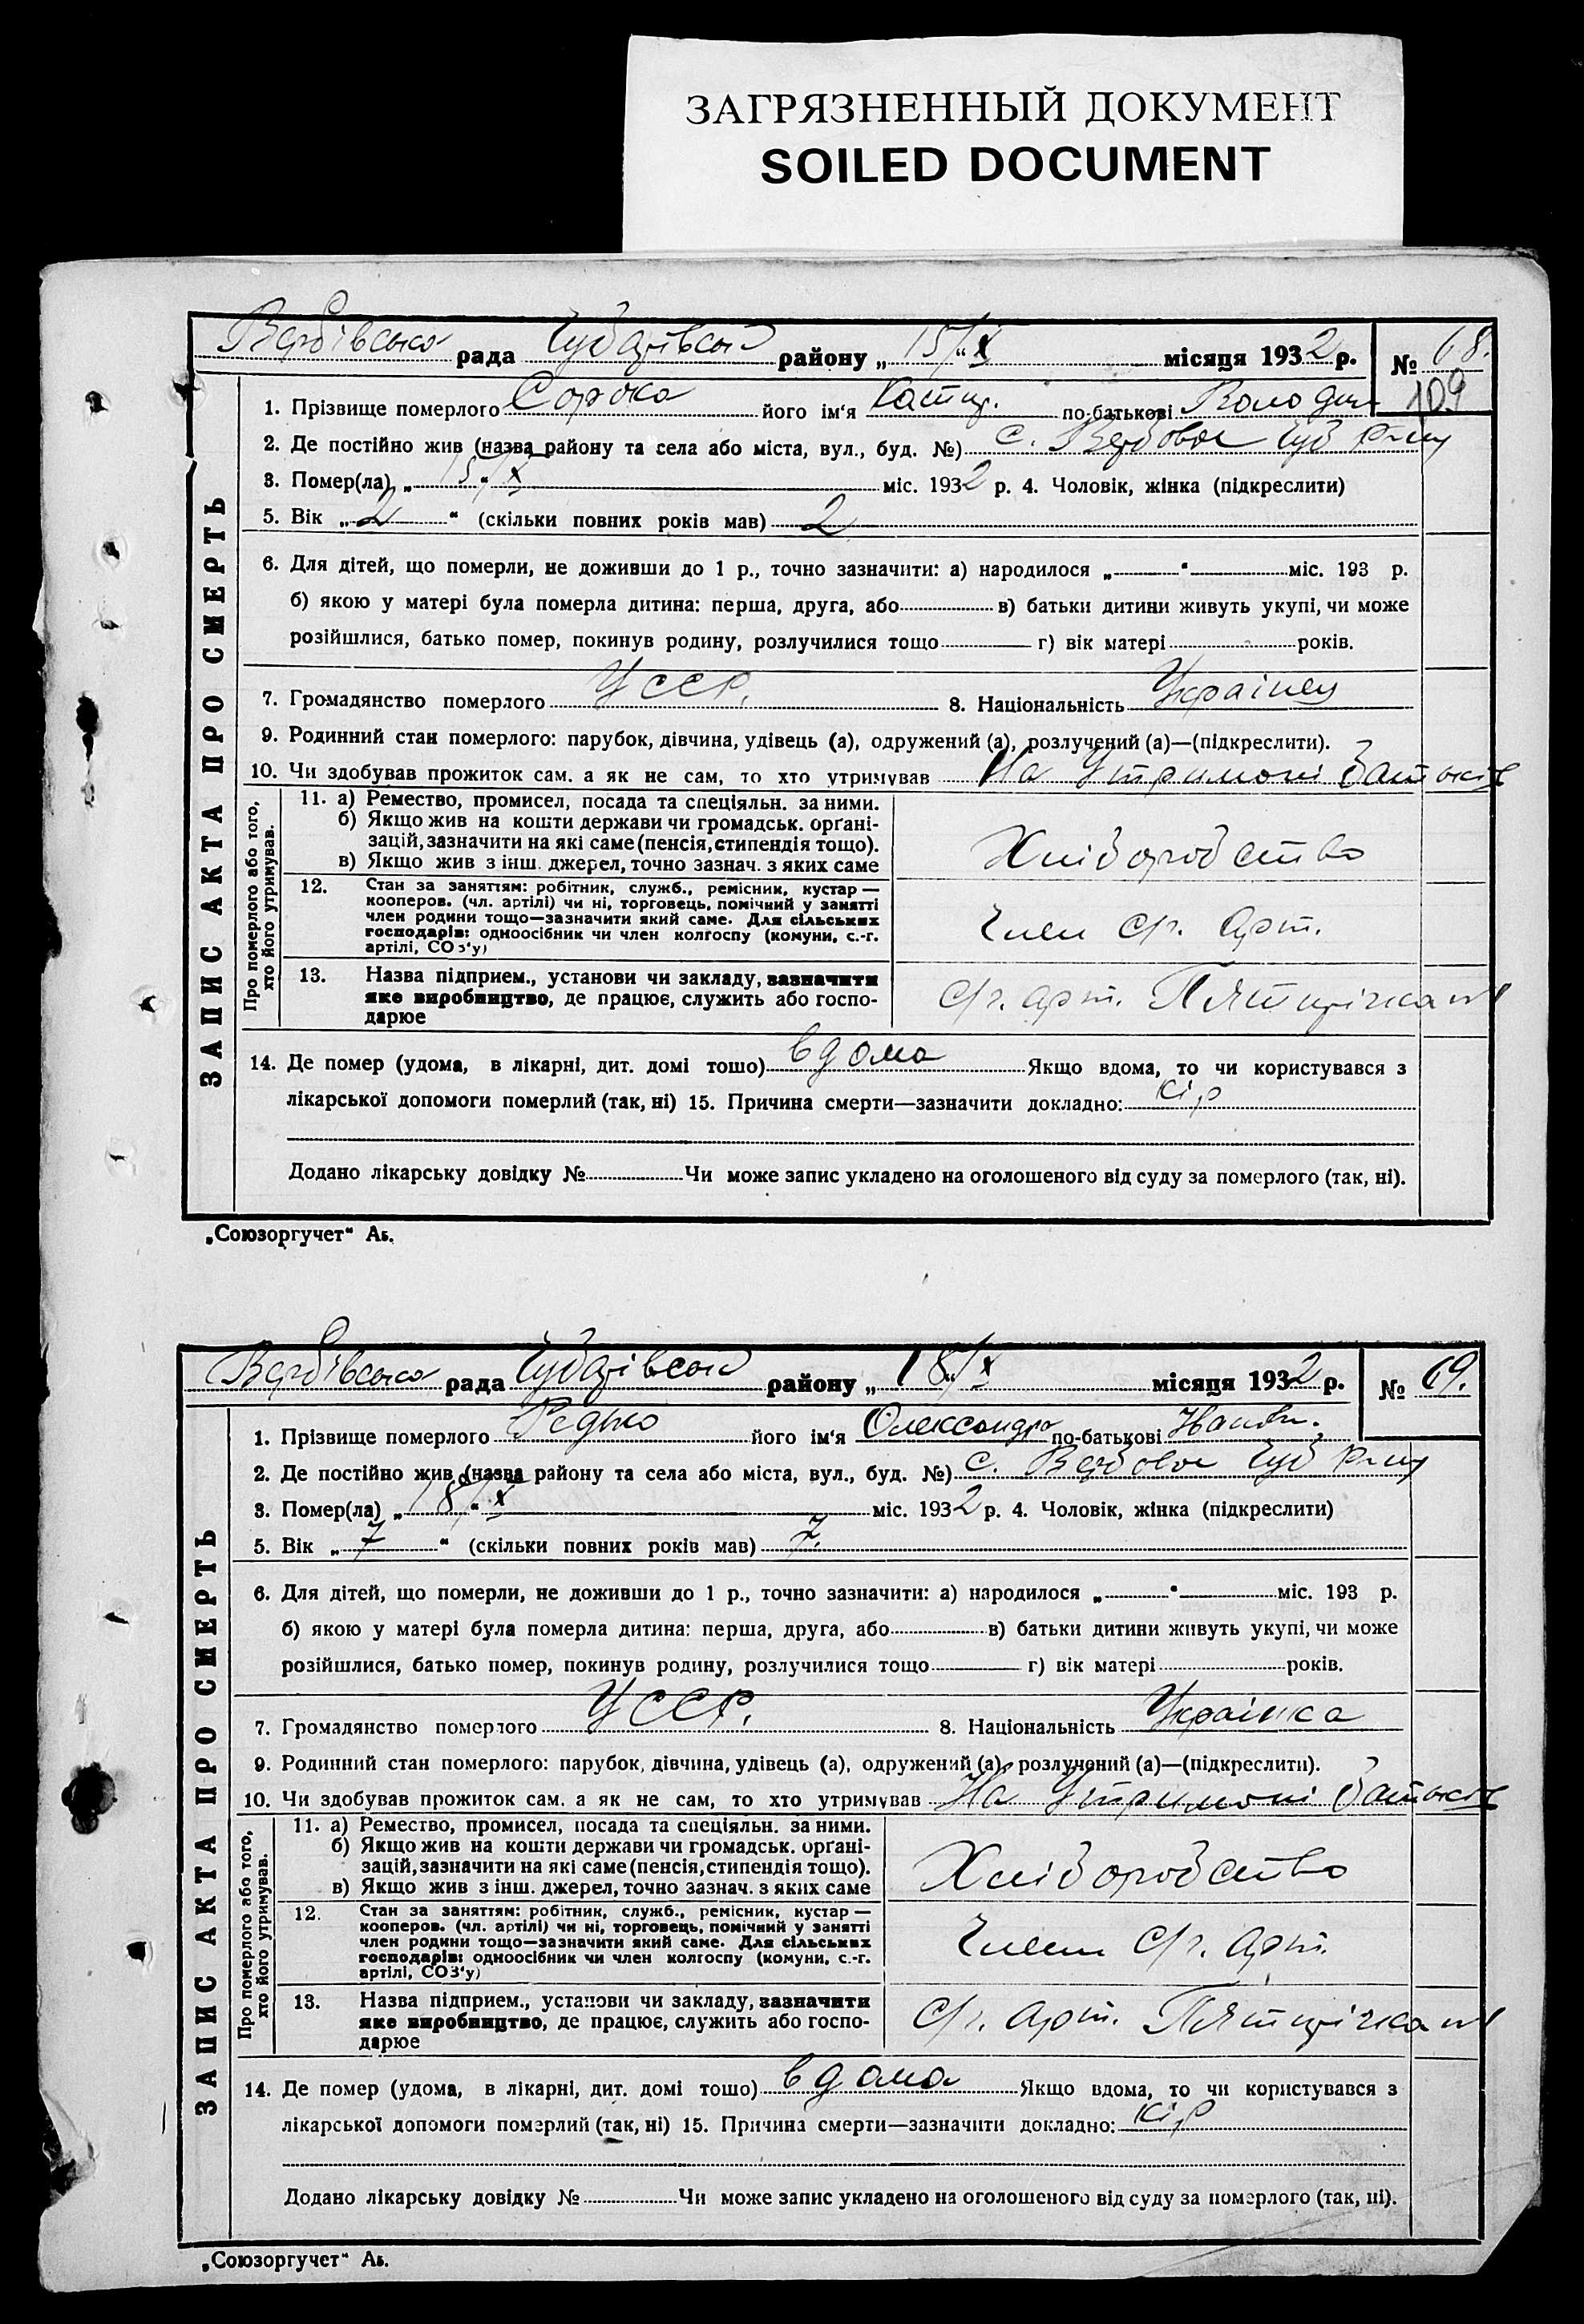 ЗАГРЯЗНЕННЫЙ ДОКУМЕНТ
SOILED DOCUMENT
Вербівська рада Чубарівськ району „ 15/ “ X місяця 1932 р. № 68.
1. Прізвище померлого Сорока його ім'я по-батькові 109
2. Де постійно жив (назва району та села або міста, вул., буд. №) с. Вербове Чуб
3. Помер(ла) „ 15 “ X міс. 1932 р. 4. Чоловік, жінка (підкреслити)
5. Вік „ 2 “ (скільки повних років мав) 2
ЗАПИС АКТА ПРО СМЕРТЬ
6. Для дітей, що померли, не доживши до 1 р., точно зазначити: а) народилося „ “ міс. 193 р.
б) якою у матері була померла дитина: перша, друга, або в) батьки дитини живуть укупі, чи може
розійшлися, батько помер, покинув родину, розлучилися тощо г) вік матері років.
7. Громадянство померлого УССР. 8. Національність Українец
9. Родинний стан померлого: парубок, дівчина, удівець (а), одружений (а), розлучений (а)—(підкреслити).
10. Чи здобував прожиток сам, а як не сам, то хто утримував На Утримані Батьків
Про померлого або того, хто його утримував.
11. а) Ремество, промисел, посада та спеціяльн. за ними.
б) Якщо жив на кошти держави чи громадськ. орґані-
зацій, зазначити на які саме (пенсія, стипендія тощо).
в) Якщо жив з інш. джерел, точно зазнач. з яких саме
Хліборобство
12. Стан за заняттям: робітник, служб., ремісник, кустар —
кооперов. (чл. артілі) чи ні, торговець, помічний у занятті
член родини тощо—зазначити який саме. Для сільських
господарів: одноосібник чи член колгоспу (комуни, с.-г.
артілі, СОЗ'у)
Член С/г. Арт.
13. Назва підприєм., установи чи закладу, зазначити
яке виробництво, де працює, служить або госпо-
дарює
С/г. арт. Пятирічка
14. Де помер (удома, в лікарні, дит. домі тощо) вдома Якщо вдома, то чи користувався з
лікарської допомоги померлий (так, ні) 15. Причина смерти—зазначити докладно: кір
Додано лікарську довідку № Чи може запис укладено на оголошеного від суду за померлого (так, ні).
„Союзоргучет“ Аб.
Вербівська рада Чубарівськ району „ 18/ X місяця 1932 р. № 69.
1. Прізвище померлого Редько його ім'я Олександра по-батькові Іванівн.
2. Де постійно жив (назва району та села або міста, вул., буд. №) с. Вербове Чуб
3. Помер(ла) „ 18/ “ X міс. 1932 р. 4. Чоловік, жінка (підкреслити)
5. Вік „ 7 “ (скільки повних років мав) 7.
ЗАПИС АКТА ПРО СМЕРТЬ
6. Для дітей, що померли, не доживши до 1 р., точно зазначити: а) народилося „ “ міс. 193 р.
б) якою у матері була померла дитина: перша, друга, або в) батьки дитини живуть укупі, чи може
розійшлися, батько помер, покинув родину, розлучилися тощо г) вік матері років.
7. Громадянство померлого УССР. 8. Національність Українка
9. Родинний стан померлого: парубок, дівчина, удівець (а), одружений (а), розлучений (а)—(підкреслити).
10. Чи здобував прожиток сам, а як не сам, то хто утримував На Утримані Батьків
Про померлого або того, хто його утримував.
11. а) Ремество, промисел, посада та спеціяльн. за ними.
б) Якщо жив на кошти держави чи громадськ. орґані-
зацій, зазначити на які саме (пенсія, стипендія тощо).
в) Якщо жив з інш. джерел, точно зазнач. з яких саме
Хліборобство
12. Стан за заняттям: робітник, служб., ремісник, кустар —
кооперов. (чл. артілі) чи ні, торговець, помічний у занятті
член родини тощо—зазначити який саме. Для сільських
господарів: одноосібник чи член колгоспу (комуни, с.-г.
артілі, СОЗ'у)
Член С/г. Арт.
13. Назва підприєм., установи чи закладу, зазначити
яке виробництво, де працює, служить або госпо-
дарює
С/г. Арт. Пятирічка
14. Де помер (удома, в лікарні, дит. домі тощо) вдома Якщо вдома, то чи користувався з
лікарської допомоги померлий (так, ні) 15. Причина смерти—зазначити докладно: кір
Додано лікарську довідку № Чи може запис укладено на оголошеного від суду за померлого (так, ні).
„Союзоргучет“ Аб.